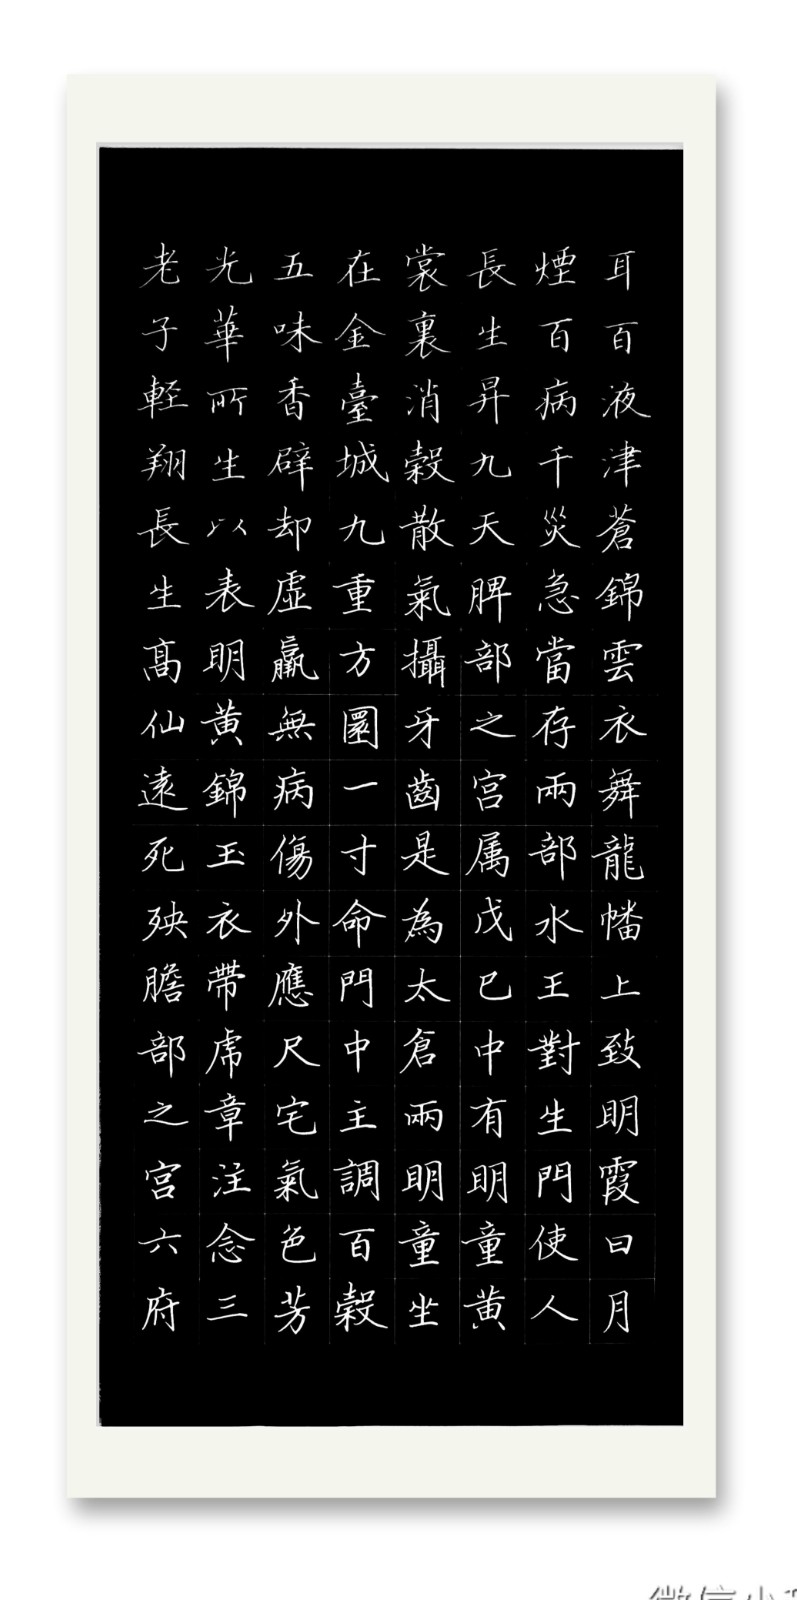 耳百液津蒼錦雲衣舞龍幡上致明霞日月
煙百病千災急當存兩部水王對生門使人
長生昇九天脾部之宮属戊巳中有明童黄
裳裏消穀散氣攝牙齒是為太倉兩明童坐
在金臺城九重方圓一寸命門中主調百穀
五味香辟却虛羸無病傷外應尺宅氣色芳
光華所生以表明黄錦玉衣帶虎章注念三
老子軽翔長生髙仙遠死殃膽部之宮六府